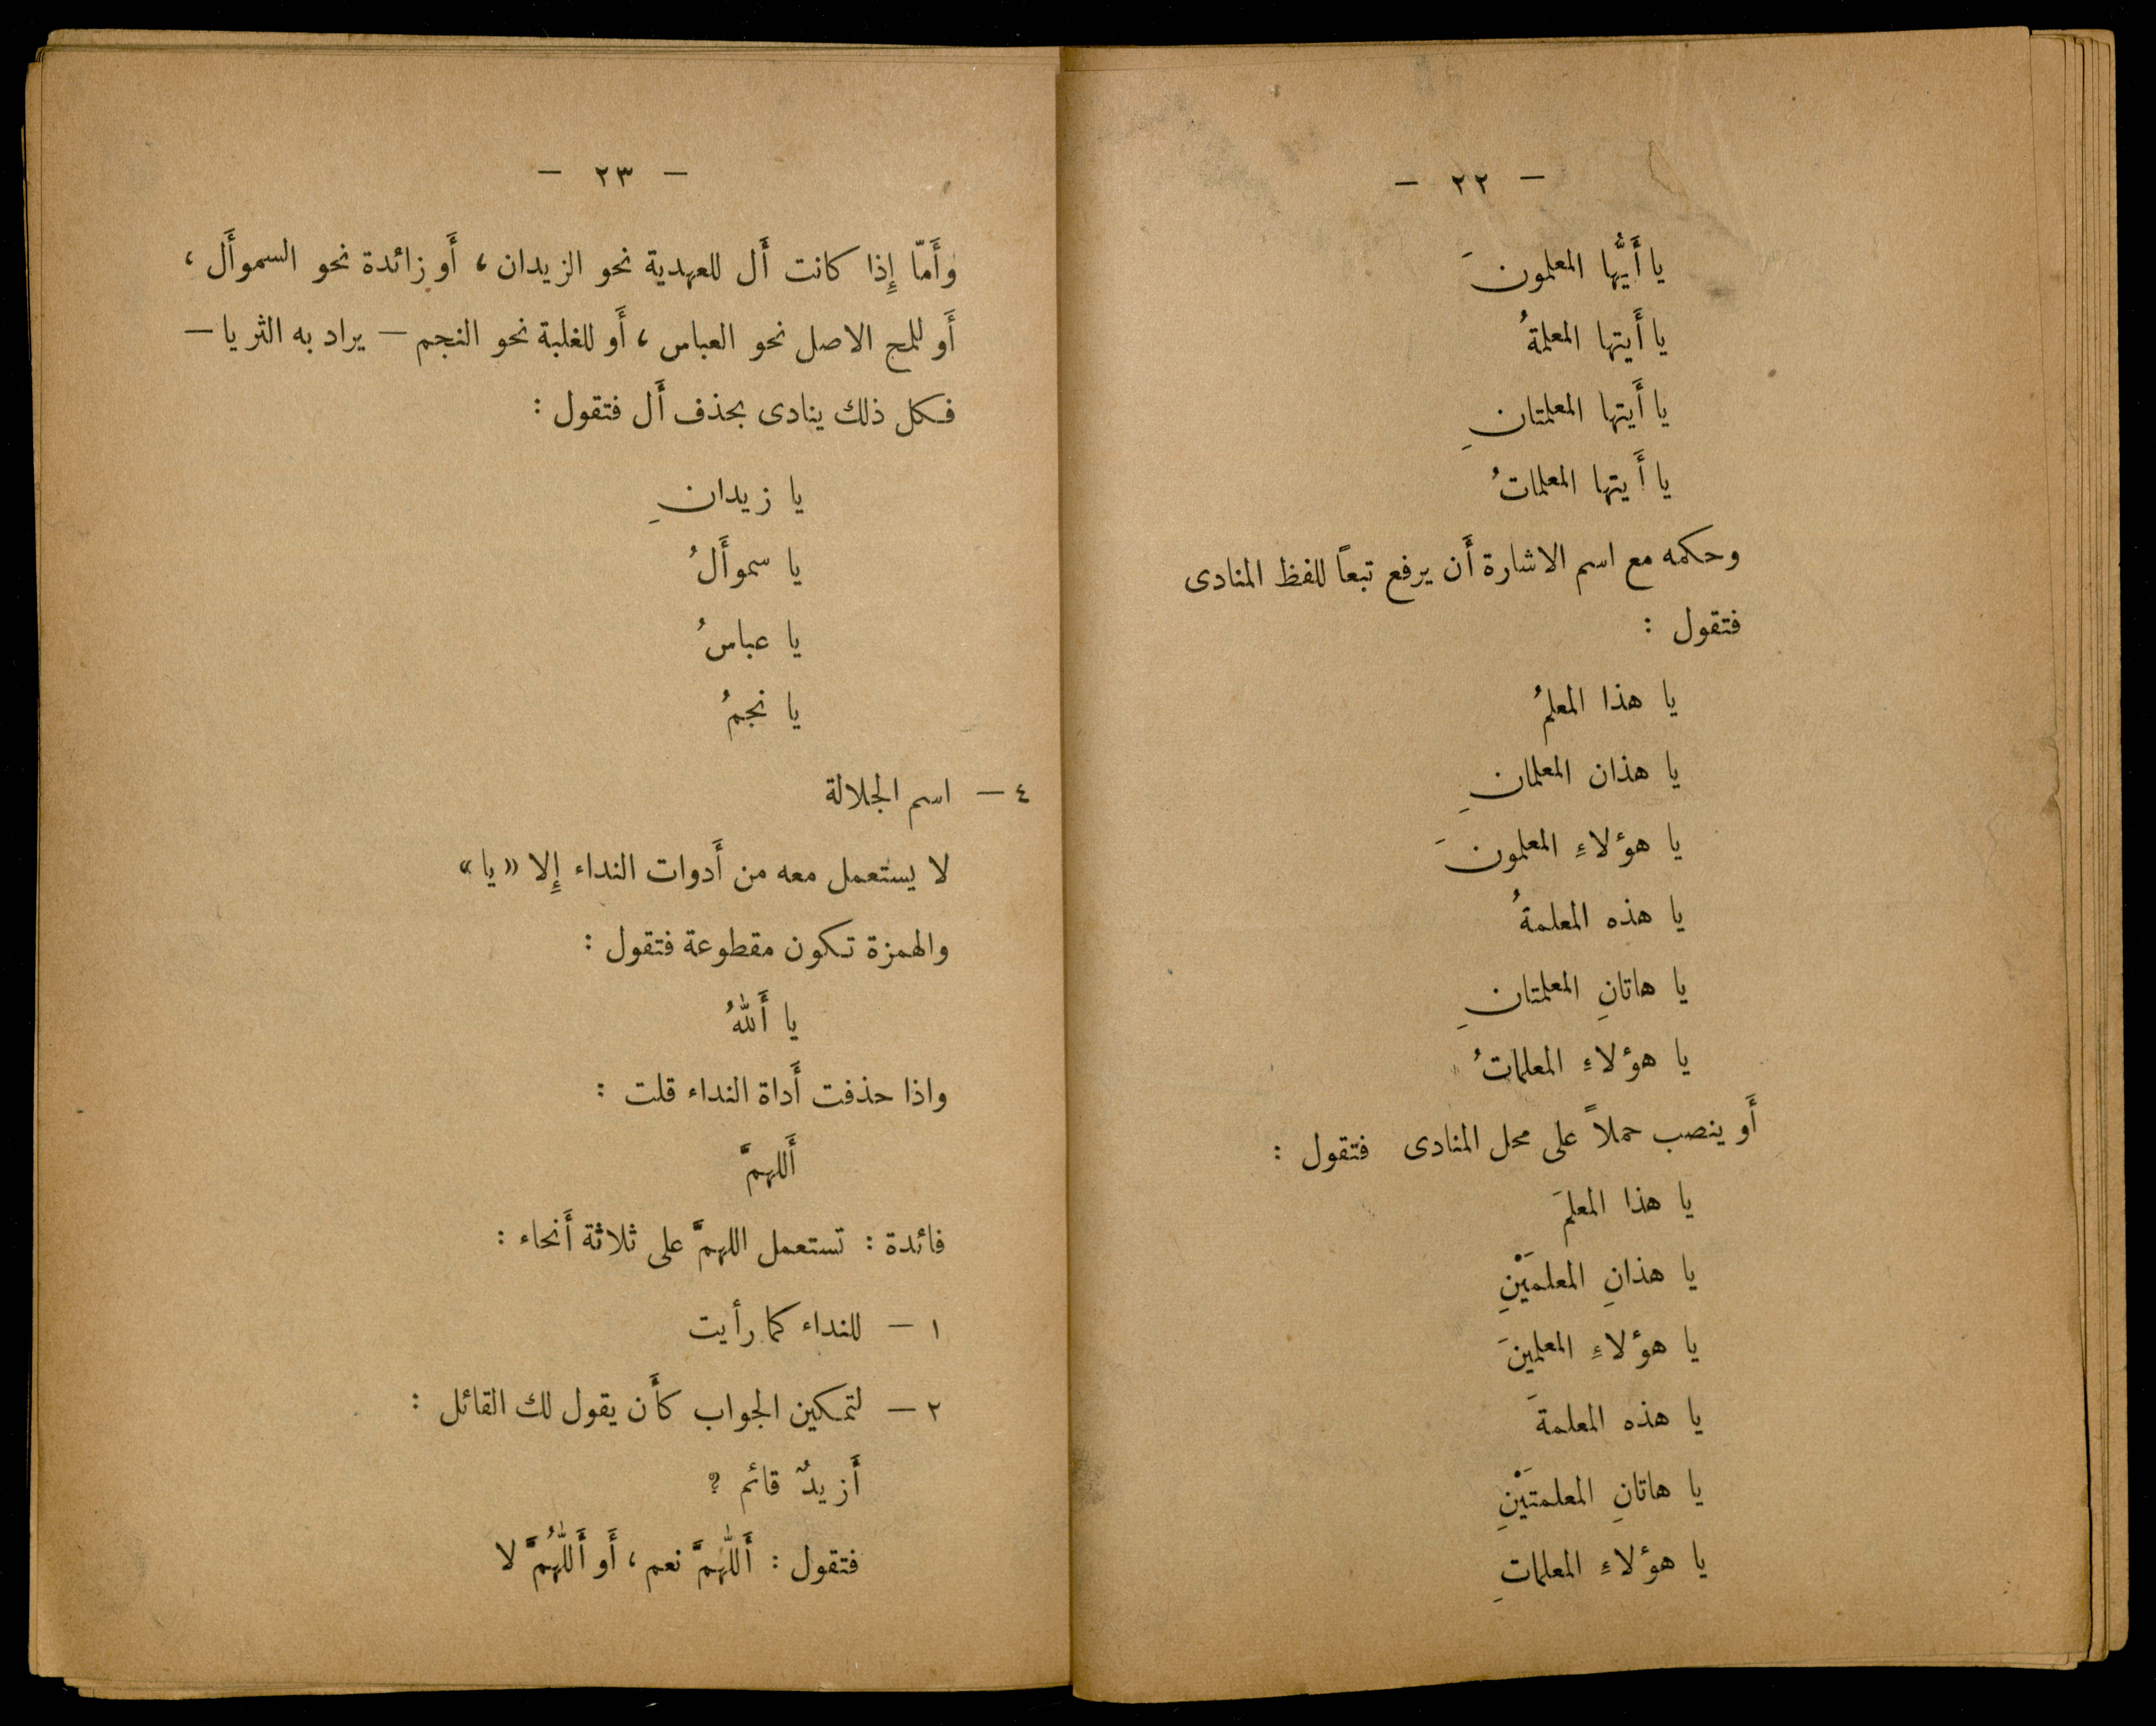 — ٢٢ —
يا أَيُّها المعلمونَ
يا أَيتها المعلمةُ
يا أَيتها المعلمتانِ
يا أَيتها المعلماتُ
وحكمه مع اسم الاشارة أَن يرفع تبعاً للفظ المنادى
فتقول :
يا هذا المعلمُ
يا هذان المعلمانِ
يا هؤلاءِ المعلمونَ
يا هذه المعلمةُ
يا هاتانِ المعلمتانِ
يا هؤلاءِ المعلماتُ
أَو ينصب حملاً على محل المنادى فتقول :
يا هذا المعلمَ
يا هذانِ المعلمَيْنِ
يا هؤلاءِ المعلمينَ
يا هذه المعلمةَ
يا هاتانِ المعلمتَيْنِ
يا هؤلاءِ المعلماتِ
— ٢٣ —
وأَمّا إِذا كانت أَل للعهدية نحو الزيدان، أَو زائدة نحو السموأَل،
أَو للمح الاصل نحو العباس، أَو للغلبة نحو النجم — يراد به الثريا —
فكل ذلك ينادى بحذف أَل فتقول :
يا زيدانِ
يا سموأَلُ
يا عباسُ
يا نجمُ
٤ — اسم الجلالة
لا يستعمل معه من أَدوات النداء إِلا «يا»
والهمزة تكون مقطوعة فتقول :
يا أَللهُ
واذا حذفت أَداة النداء قلت :
أَللهمَّ
فائدة : تستعمل اللهمَّ على ثلاثة أَنحاء :
١ — للنداء كما رأيت
٢ — لتمكين الجواب كأَن يقول لك القائل :
أَزيدٌ قائم ؟
فتقول : أَللّٰهمَّ نعم، أَو أَللّٰهُمَّ لا